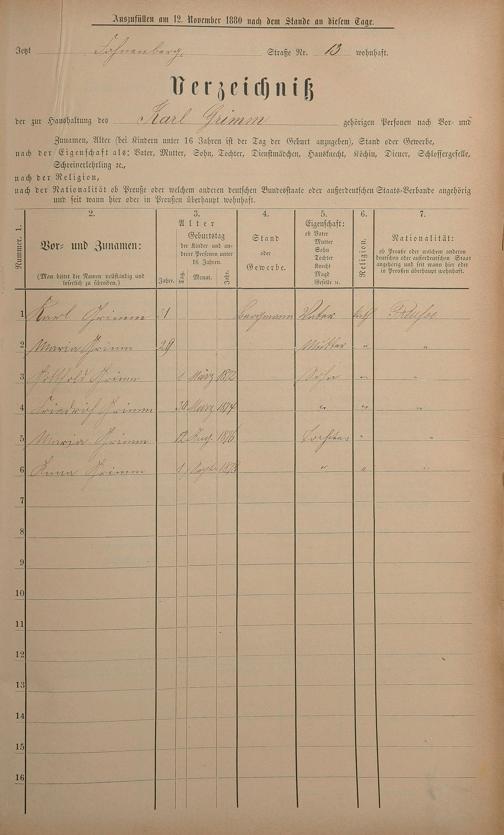 Auszufüllen am 12. November 1880 nach dem Stande an diesem Tage.
Jetzt Straße Nr. 13 wohnhaft.
Verzeichniß
der zur Haushaltung des Karl Grimm gehörigen Personen nach Vor- und
Zunamen, Alter (bei Kindern unter 16 Jahren ist der Tag der Geburt anzugeben), Stand oder Gewerbe,
nach der Eigenschaft als: Vater, Mutter, Sohn, Tochter, Dienstmädchen, Hausknecht, Köchin, Diener, Schlossergeselle,
Schreinerlehrling ꝛc.,
nach der Religion,
nach der Nationalität ob Preuße oder welchem anderen deutschen Bundesstaate oder außerdeutschen Staats-Verbande angehörig
und seit wann hier oder in Preußen überhaupt wohnhaft.
Nummer. 1.
2.
Vor- und Zunamen:
(Man bittet die Namen vollständig und
leserlich zu schreiben.)
3.
Alter
Geburtstag
der Kinder und anderer Personen unter
16 Jahren.
Jahre. Tag. Monat. Jahr.
4.
Stand
oder
Gewerbe.
5.
Eigenschaft:
ob Vater
Mutter
Sohn
Tochter
Knecht
Magd
Geselle u.
6.
Religion.
7.
Nationalität:
ob Preuße oder welchem anderen
deutschen oder außerdeutschen Staat
angehörig und seit wann hier oder
in Preußen überhaupt wohnhaft.
1 Karl Grimm 31 Bergmann Vater kath Preuße
2 Maria Grimm 29 Mutter " "
3 Grimm 1 März 1872 Sohn " "
4 Friedrich Grimm 30 März 1874 " " "
5 Maria Grimm 12 Aug 1876 Tochter " "
6 Anna Grimm 1 " " "
7
8
9
10
11
12
13
14
15
16